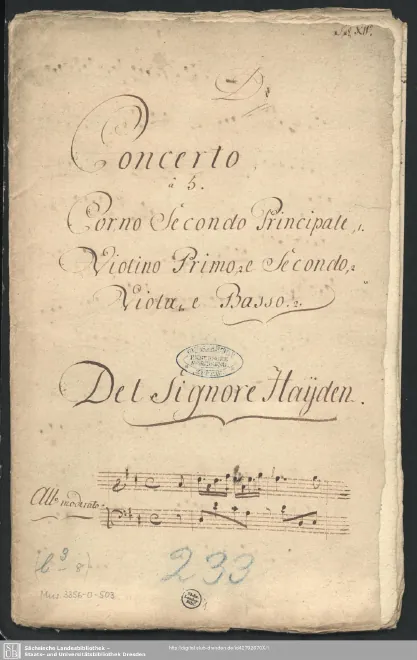 Concerto
à 5.
Corno Secondo Principale,
Violino Primo, e Secondo,
Viola, e Basso.
Del Signore Haÿden.
All° moderato
233
Mus. 3356-O-503
Sächsische Landesbibliothek –
Staats- und Universitätsbibliothek Dresden